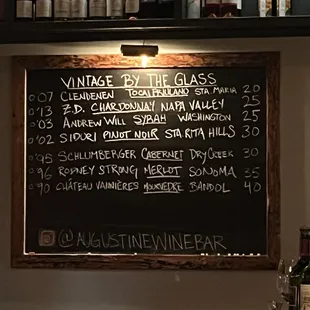 VINTAGE BY THE GLASS
07 CLENDENEN TOCAI FRIULANO STA MARIA 20
'13 Z.D. CHARDONNAY NAPA VALLEY 25
'03 ANDREW WILL SYRAH WASHINGTON 25
'02 SIDURI PINOT NOIR STA RITA HILLS 30
'95 SCHLUMBERGER CABERNET DRY CREEK 30
'96 RODNEY STRONG MERLOT SONOMA 35
'90 CHÂTEAU VANNIÈRES MOURVEDRE BANDOL 40
@AUGUSTINEWINEBAR